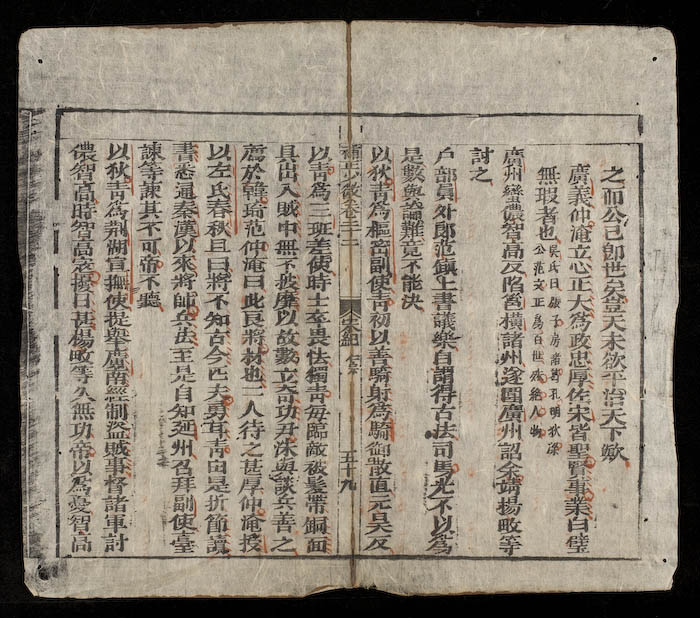 之而公已卽世矣豈天未欲平治天下歟
廣義仲淹立心正大爲政忠厚佐宋皆聖賢事業白璧
無瑕者也
吳氏曰張子房諸葛孔明狄梁
公范文正爲百世殊絶人物
廣州蠻儂智高反陷邕橫諸州遂圍廣州詔余靖楊畋等
討之
戶部員外郎范鎭上書議樂自謂得古法司馬光不以爲
是數與論難竟不能決
以狄靑爲樞密副使靑初以善騎射爲騎御散直元昊反
五十九
以靑爲三班差使時士卒畏怯獨靑每臨敵被髮帶銅面
具出入賊中無不披靡以故數立奇功尹洙與談兵善之
薦於韓琦范仲淹曰此良將材也二人待之甚厚仲淹授
以左氏春秋且曰將不知古今匹夫勇耳靑由是折節讀
書悉通秦漢以來將帥兵法至是自知延州召拜副使臺
諫等諫其不可帝不聽
以狄靑爲荆湖宣撫使提舉廣南經制盜賊事督諸軍討
儂智高時智高寇擾日甚楊畋等久無功帝以爲憂智高